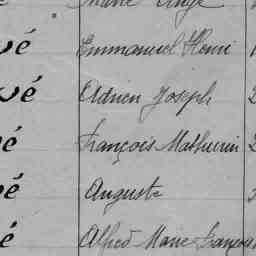 Marie Ange
vé Emmanuel Henri
vé Adrien Joseph 2
é François Mathurin 2
é Auguste
é Alfred Marie François